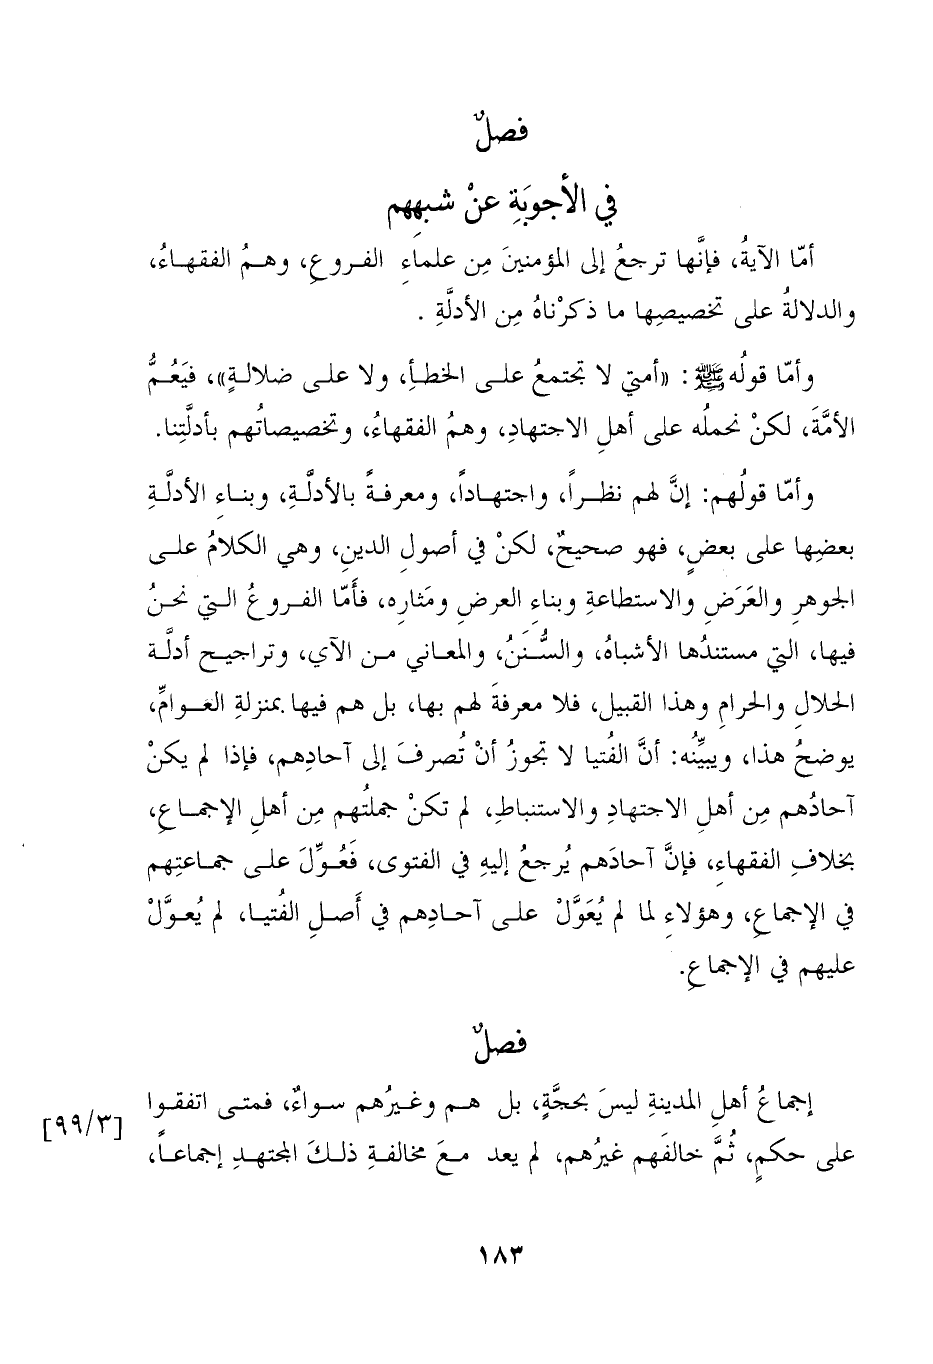 فصلٌ
في الأجوبَةِ عنْ شبهِهم
أمّا الآيةُ، فإنَّها ترجعُ إلى المؤمنينَ مِن علماءِ الفروعِ، وهمُ الفقهاءُ،
والدلالةُ على تخصيصِها ما ذكرْناهُ مِن الأدلَّةِ .
وأمّا قولُه ﷺ : «أمتي لا تجتمعُ على الخطأِ، ولا على ضلالةٍ»، فيَعُمُّ
الأمَّةَ، لكنْ نحملُه على أهلِ الاجتهادِ، وهمُ الفقهاءُ، وتخصيصاتُهم بأدلَّتِنا.
وأمّا قولُهم: إنَّ لهم نظراً، واجتهاداً، ومعرفةً بالأدلَّةِ، وبناءِ الأدلَّةِ
بعضِها على بعضٍ، فهو صحيحٌ، لكنْ في أصولِ الدينِ، وهي الكلامُ على
الجوهرِ والعَرَضِ والاستطاعةِ وبناءِ العرضِ ومَثارِه، فأَمّا الفروعُ التي نحنُ
فيها، التي مستندُها الأشباهُ، والسُّنَنُ، والمعاني من الآي، وتراجيح أدلَّة
الحلالِ والحرامِ وهذا القبيل، فلا معرفةَ لهم بها، بل هم فيها بمنزلةِ العوامِّ،
يوضحُ هذا، ويبيِّنُه: أنَّ الفُتيا لا تجوزُ أنْ تُصرفَ إلى آحادِهم، فإذا لم يكنْ
آحادُهم مِن أهلِ الاجتهادِ والاستنباطِ، لم تكنْ جملتُهم مِن أهلِ الإجماعِ،
بخلافِ الفقهاءِ، فإنَّ آحادَهم يُرجعُ إليهِ في الفتوى، فَعُوِّلَ على جماعتِهم
في الإجماعِ، وهؤلاءِ لما لم يُعَوَّلْ على آحادِهم في أَصلِ الفُتيا، لم يُعوَّلْ
عليهم في الإجماعِ.
فصلٌ
إجماعُ أهلِ المدينةِ ليسَ بحجَّةٍ، بل هم وغيرُهم سواءٌ، فمتى اتفقوا
[٩٩/٣]
على حكمٍ، ثُمَّ خالفَهم غيرُهم، لم يعد معَ مخالفةِ ذلكَ المجتهدِ إجماعاً،
١٨٣